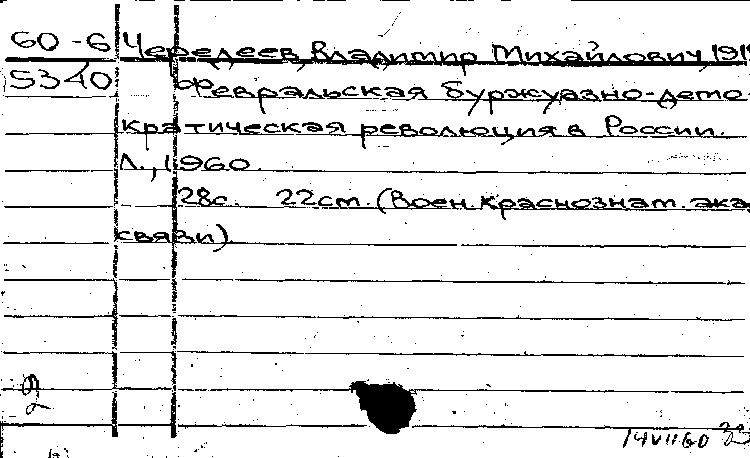 60-6 Чередеев, Владимир Михайлович, 191
5340 Февральская буржуазно-демо-
кратическая революция в России.
Л., 1960.
28с. 22см. (Воен. краснознам. ака
связи)
2
14 VII 60